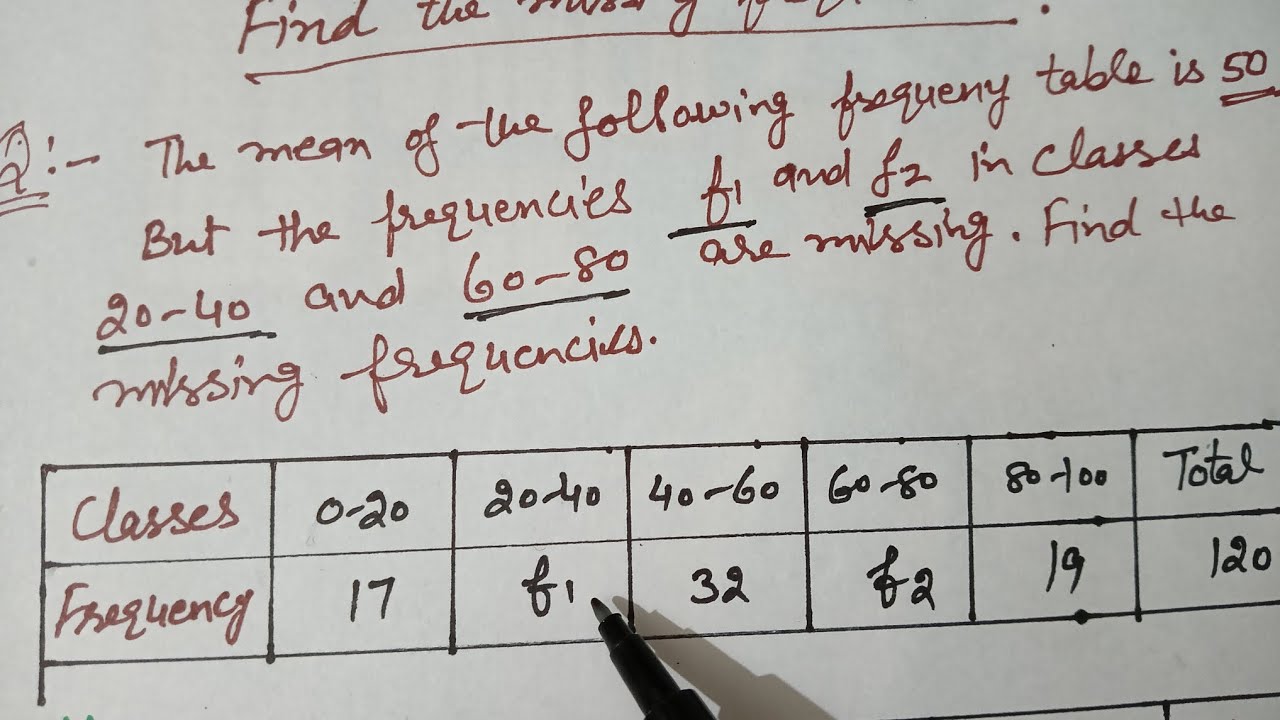 Find the
Q:- The mean of the following frequeny table is 50
But the frequencies f1 and f2 in classes
20-40 and 60-80 are missing. Find the
missing frequencies.
Classes 0-20 20-40 40-60 60-80 80-100 Total
Frequency 17 f1 32 f2 19 120